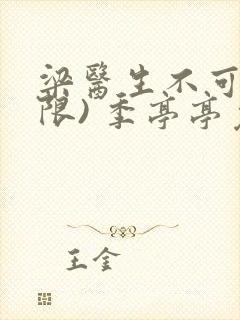 梁醫生不可
限) 季亭亭
王金